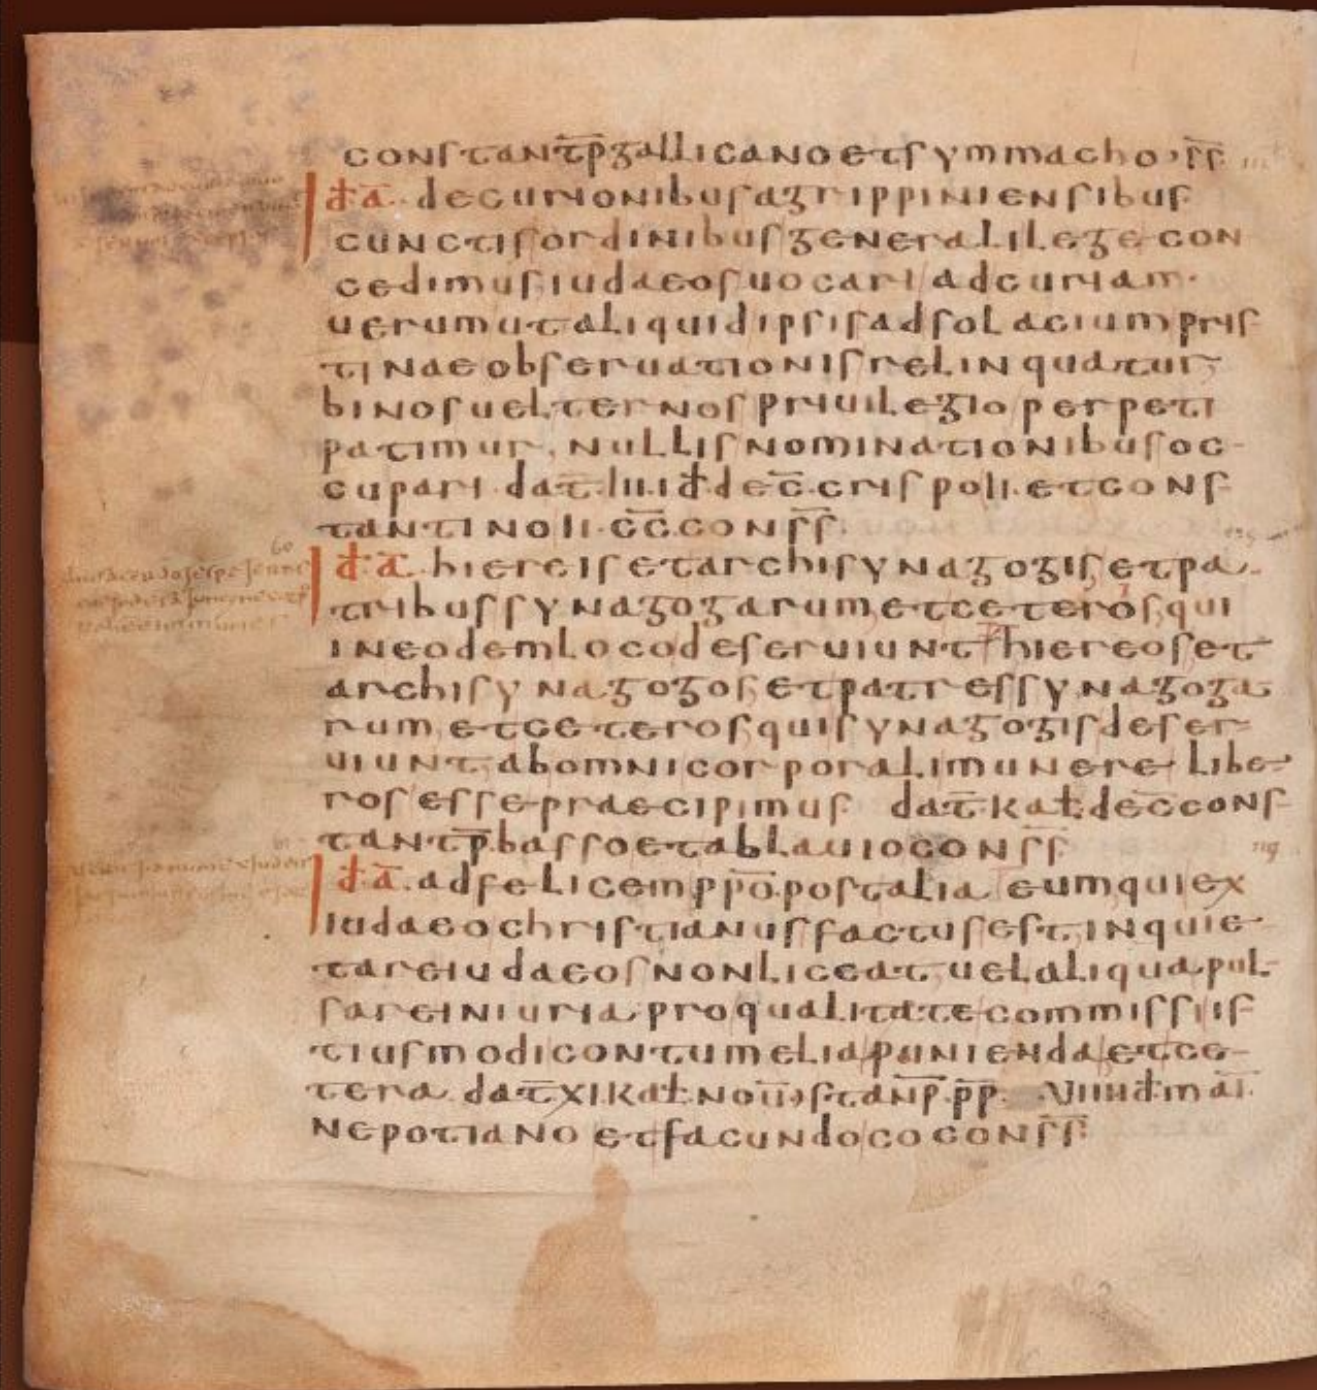 constantp̄ gallicano et symmacho c̄s̄s̄
d̄ ā decurionibus agrippiniensibus
cunctis ordinibus generali lege con
cedimus iudaeos uocari ad curiam.
uerum ut aliquid ipsis ad solacium pris
tinae obseruationis relinquatur
binos uel ternos priuilegio perpeti
patimur. nullis nominationibus oc
cupari. dat̄. iii. id̄ dec̄. crispo. ii. et cons
tantino ii. c̄c̄. cons̄s̄.
d̄ ā hiereis et archisynagogis et pa
tribus synagogarum et ceteros qui
in eodem loco deseruiunt hiereos et
archisynagogos et patres synagoga
rum et ceteros qui synagogis deser
uiunt ab omni corporali munere libe
ros esse praecipimus dat̄. kal̄. dec̄ cons
tantp̄. basso et ablauio cons̄s̄
119
d̄ ā. ad felicem pp̄ō. post alia eum qui ex
iudaeo christianus factus est inquie
tare iudaeos non liceat uel aliqua pul
sare iniuria pro qualitate commissi is
tiusmodi contumelia punienda et ce
tera dat̄ xi kal̄ nou̅ cstan̄p. p̄p̄. uiiii d̄ mai̅.
nepotiano et facundo cocons̄s̄